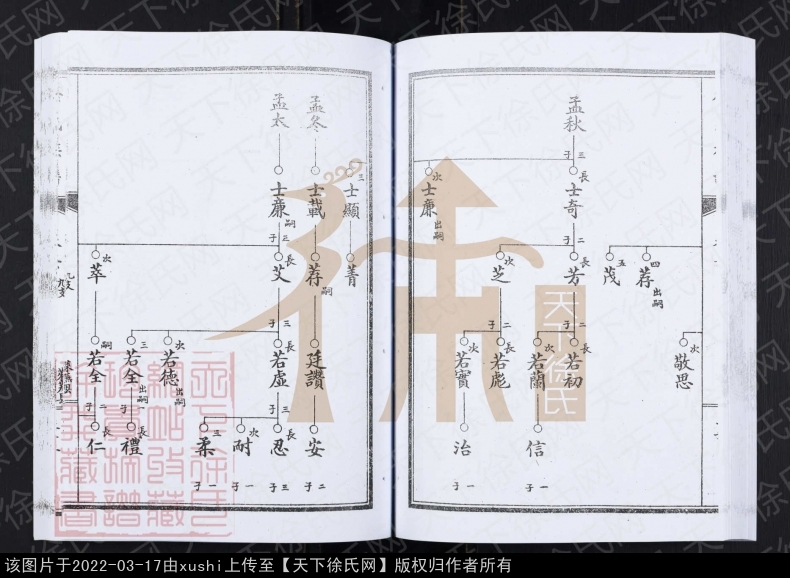 孟秋
子三
長
士奇
次
士廉
出嗣
子二
長
芳
次
芝
四
荐
出嗣
五
茂
次
敬思
子二
長
若初
次
若蘭
子二
長
若彪
次
若實
信
治
子一
子一
孟冬
孟太
三
士顯
士載
士廉
嗣
子三
菁
荐
嗣
長
艾
次
萃
子三
廷讚
長
若虛
次
若德
出嗣
三
若全
出嗣
嗣
若全
子三
安
長
忍
次
耐
三
柔
長
禮
子二
長
仁
子二
子三
子一
子一
天下徐氏
天下徐氏网
该图片于2022-03-17由xushi上传至【天下徐氏网】版权归作者所有